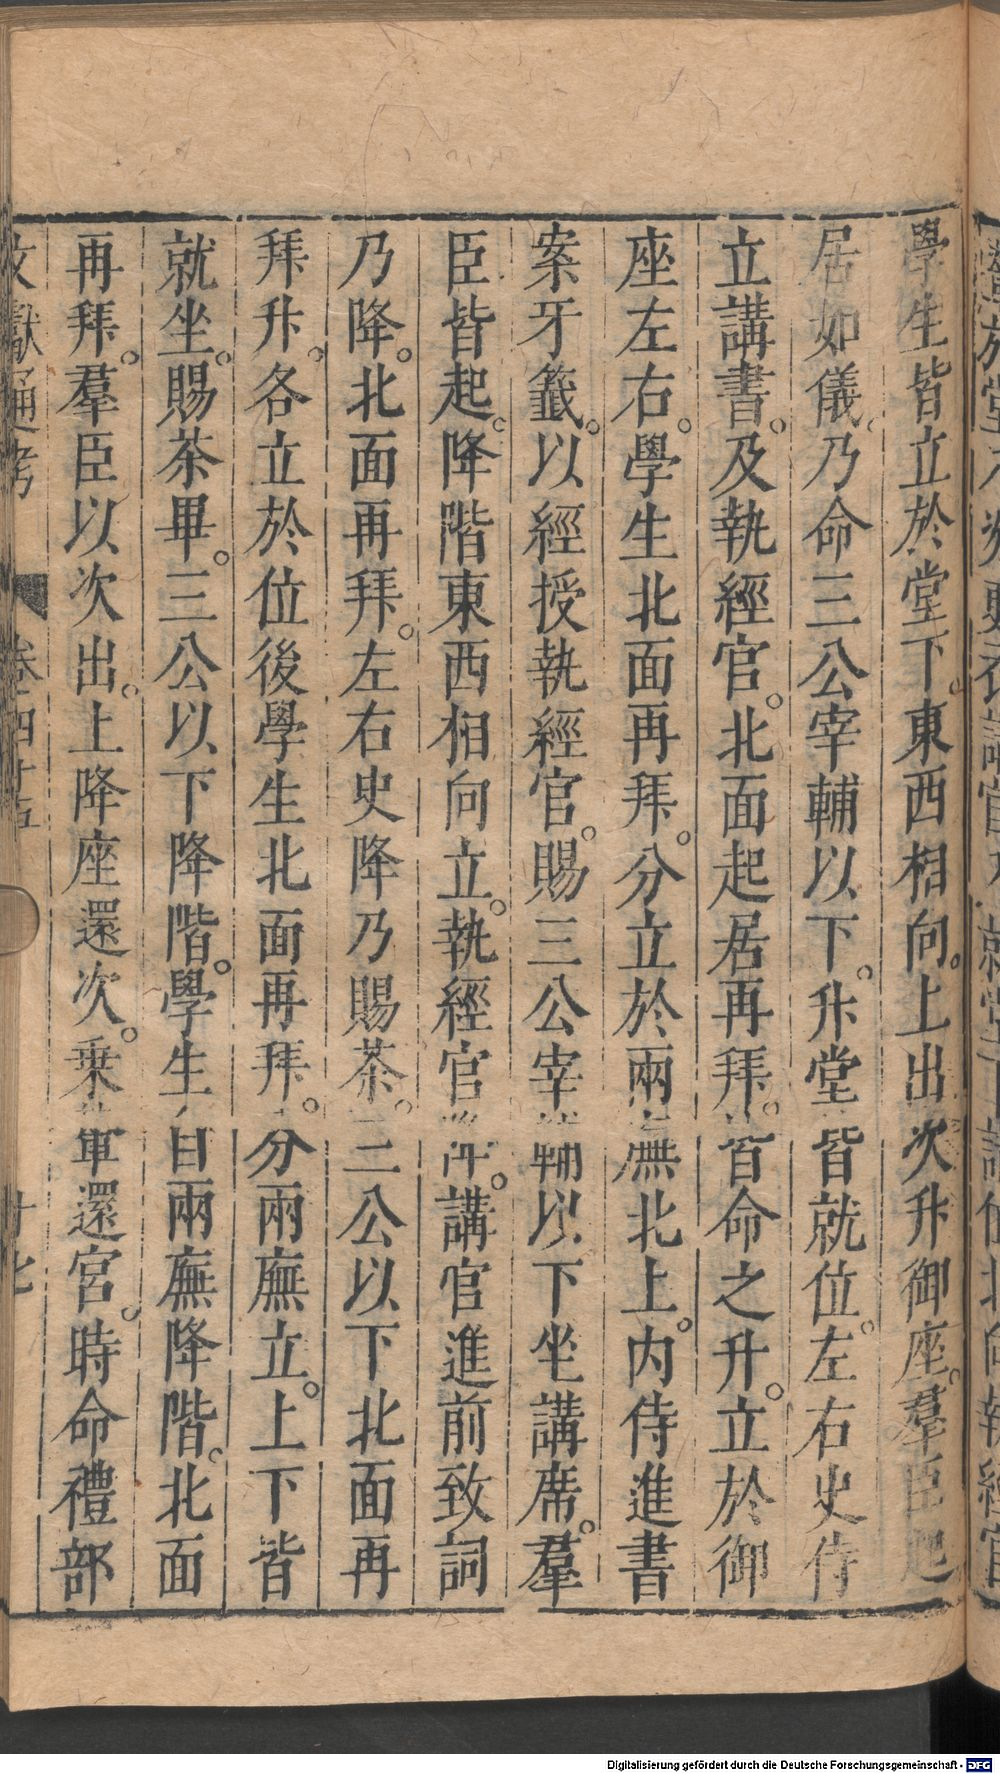 學生皆立於堂下。東西相向。上出次升御座。羣臣起
居如儀。乃命三公宰輔以下。升堂皆就位。左右史侍
立講書。及執經官。北面起居再拜。皆命之升。立於御
座左右。學生北面再拜。分立於兩廡北上。內侍進書
案牙籤。以經授執經官。賜三公宰輔以下坐講席。羣
臣皆起。降階東西相向立。執經官講。講官進前致詞
乃降。北面再拜。左右史降乃賜茶。三公以下北面再
拜升。各立於位後學生北面再拜。分兩廡立。上下皆
就坐。賜茶畢。三公以下降階。學生自兩廡降階。北面
再拜。羣臣以次出。上降座還次。乗輦還宮。時命禮部
文獻通考 卷四十五
Digitalisierung gefördert durch die Deutsche Forschungsgemeinschaft - DFG